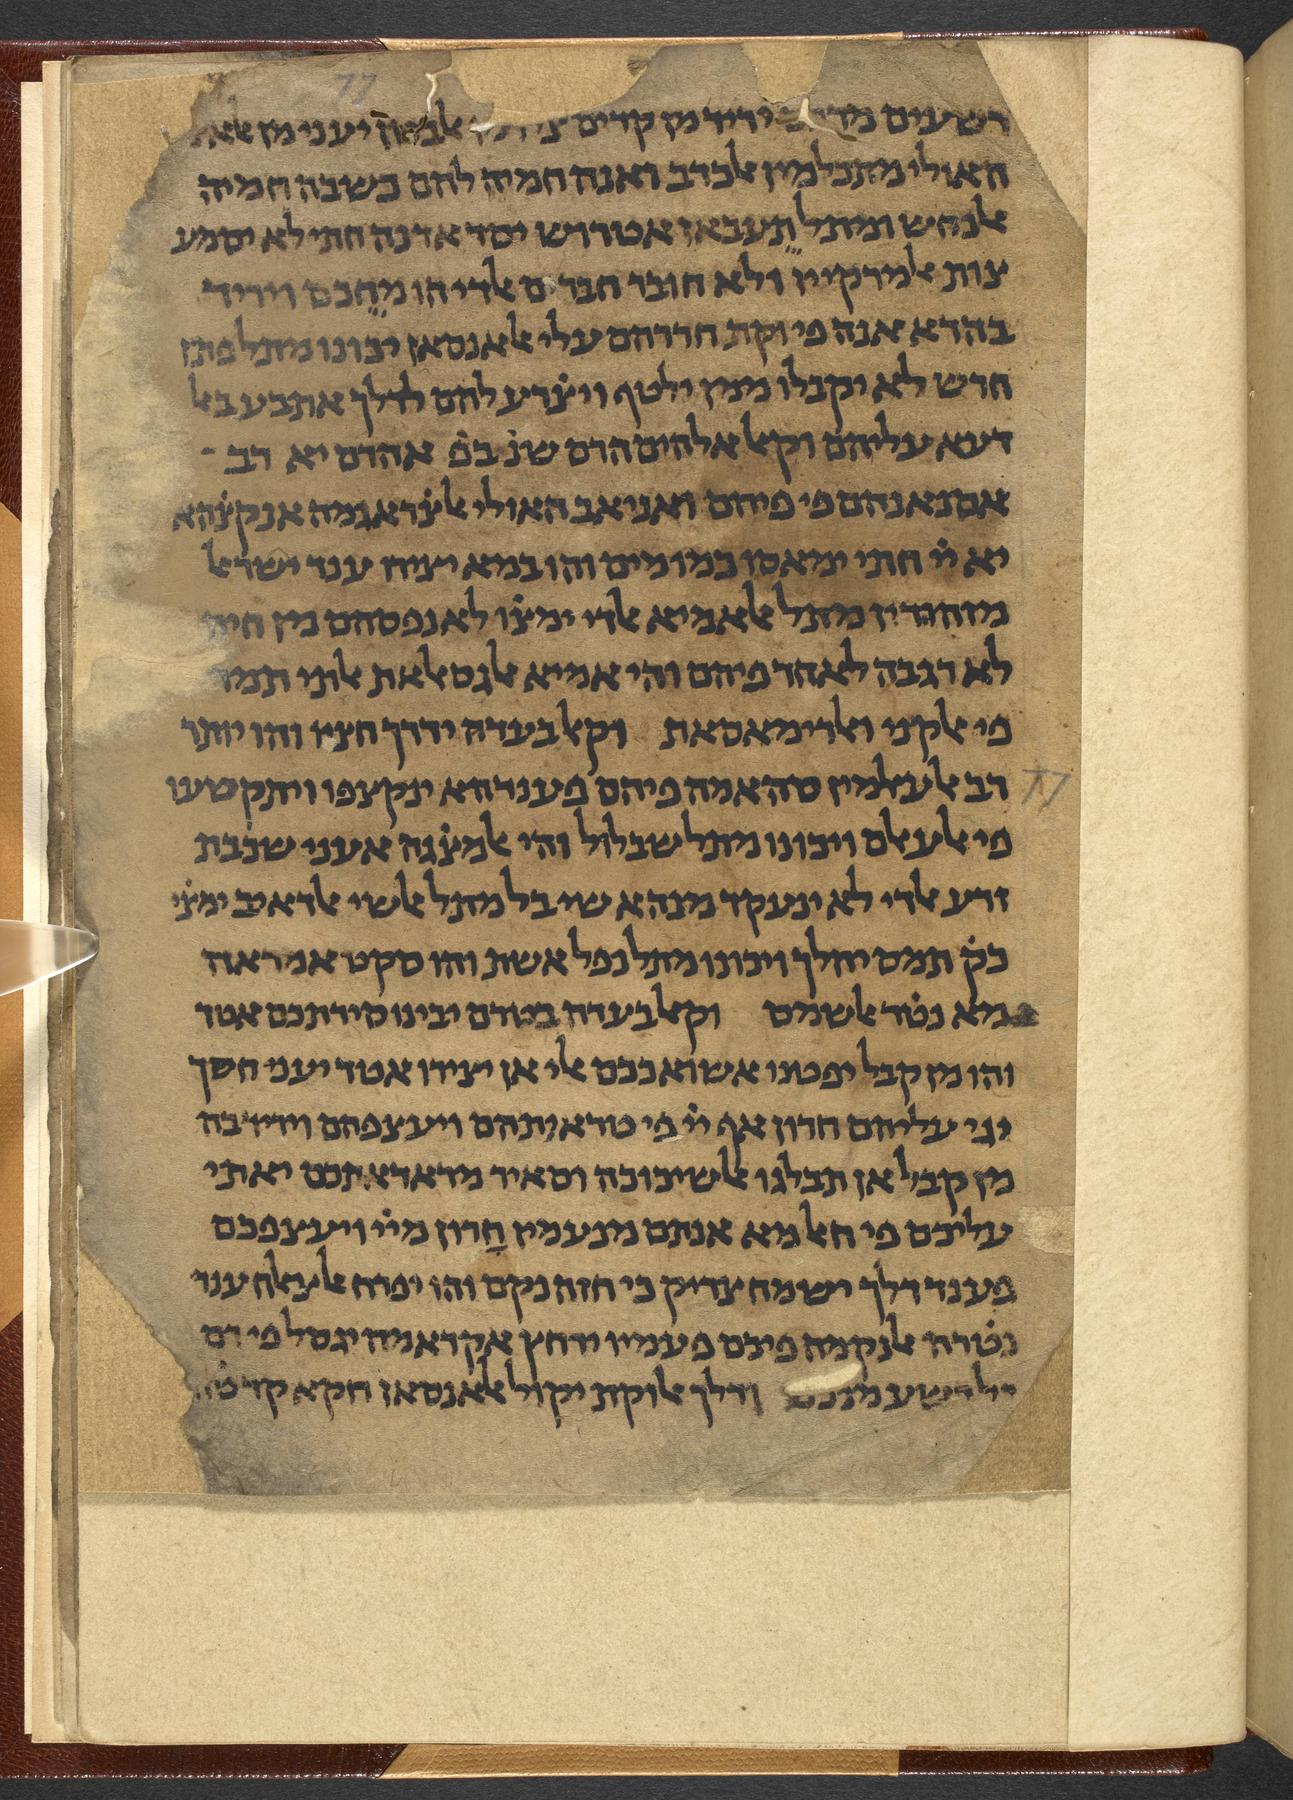 77
רשעים ידיד מן קדים יעני מן
האולי מתכלמין אלכדב ואנה חמיה להם כשובה חמיה
אלנחש ומתל תעבאן אטרוש יסד אדנה חתי לא יסמע
צות אלמרקיין ולא חובר חברים אלדי הו מחכם ויריד
בהדא אנה פי וקת חררהם עלי אלאנסאן יכונו מתל פתן
חרש לא יקבלו ממן ילטף ויצרע להם לדלך אתבע באל
דעא עליהם וקאל אלהים הרס שנ׳ בפ׳ אהדם יא רב
אסנאנהם פי פיהם ואניאב האולי אלצראגמה אנקצהא
יא יי חתי ימאסו כמו מים והו במא יציח ענד ישראל
מזהודין מתל אלאמיא אלדי ימצו לאנפסהם מן חית
לא רגבה לאחד פיהם והי אמיא אלגסאלאת אלתי תמר
פי אלקני ואלדימאסאת וקאל בעדה ידרך חציו והו יותר
רב אלעאלמין סהאמה פיהם פענדהא ינקצפו ויתקטעו
פי אלעאלם ויכונו מתל שבלול והי אלמצגה אעני שכבת
זרע אלדי לא ינעקד מנהא שי בל מתל אלשי אלדאיב ימצי
כק׳ תמס יהלך ויכונו מתל נפל אשת והו סקט אמראה
מא נטר אלשמס וקאל בעדה בטרם יבינו סירתכם אטד
והו מן קבל יפטנו אשואככם אלי אן יצירו אטד יעני חסך
יגי עליהם חרון אף יי פי טראותהם ויעצפהם ויריד בה
מן קבל אן תבלגו אלשיכוכה וסאיר מראדאתכם יאתי
עליכם פי חאל מא אנתם מנעמין חרון מיי ויעצפכם
פענד דלך ישמח צדיק כי חזה נקם והו יפרח אלצאלח ענד
נטרה אלנקמה פיכם פעמיו ירחץ אקדאמה יגסל פי דם
אלרשע מנכם ודלך אלוקת יקול אלאנסאן חקא קד
77